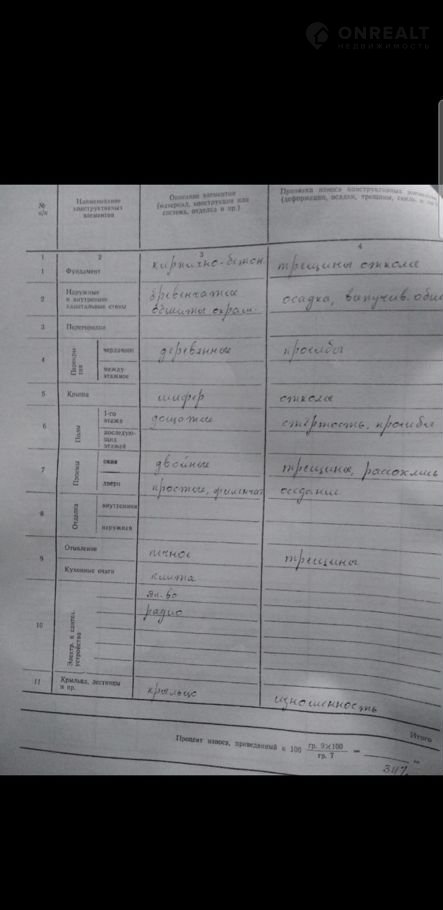 ONREALT
НЕДВИЖИМОСТЬ
№ п/п
Наименование конструктивных элементов
Описание элементов (материал, конструкция или система, отделка и пр.)
Признаки износа конструктивных элементов (деформация, осадка, трещины, гниль и
1 2 3 4
1 Фундамент кирпично-бетон. трещины отколы
2 Наружные и внутренние капитальные стены бревенчатые обшиты окраш. осадка, выпучив.
3 Перегородки
4 чердачное деревянные прогибы
между-этажное
5 Крыша шифер отколы
6 Полы 1-го этажа дощатые стёртость, прогибы
последую-щих этажей
7 Проемы окна двойные трещины, рассохлись
двери простые, филенчат оседание
8 Отделка внутренняя
наружная
9 Отопление печное трещины
Кухонные очаги плита
10 Электр. и сантех. устройства эл-во
радио
11 Крыльца, лестницы и пр. крыльцо изношенность
Итого
Процент износа, приведенный к 100 гр. 9×100 / гр. 7 =
34%